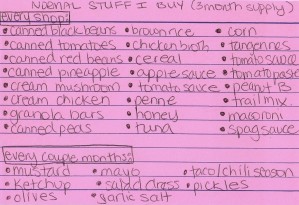 NORMAL STUFF I BUY (3 month supply)
every shop:
•canned black beans •brown rice •corn
•canned tomatoes •chicken broth •tangerines
•canned red beans •cereal •tomato sauce
•canned pineapple •apple sauce •tomato paste
•cream mushroom •tomato sauce •peanut B
•cream chicken •penne •trail mix
•granola bars •honey •macaroni
•canned peas •tuna •spag sauce
every couple months:
•mustard •mayo •taco/chili season
•ketchup •salad dress •pickles
•olives •garlic salt